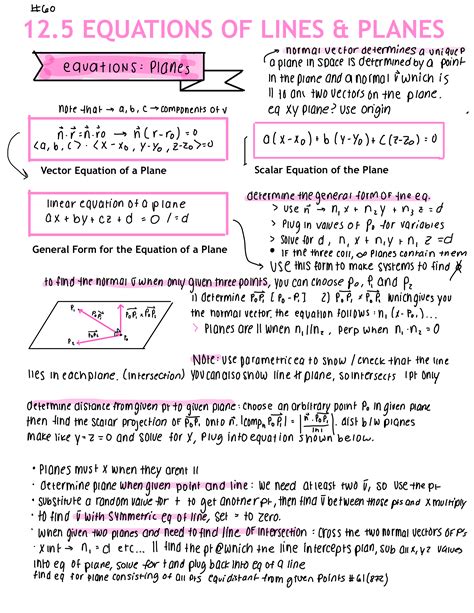 #60
12.5 EQUATIONS OF LINES & PLANES
equations: Planes
→ normal vector determines a unique
a plane in space is determined by a point
in the plane and a normal n⃗ which is
11 to any two vectors on the plane.
eq xy plane? Use origin
note that → a, b, c → components of v
n⃗·r⃗ = n⃗·r0 → n⃗(r-r0) = 0
<a, b, c> · <x-x0, y-y0, z-z0> = 0
Vector Equation of a Plane
a(x-x0) + b(y-y0) + c(z-z0) = 0
Scalar Equation of the Plane
linear equation of a plane
ax + by + cz + d = 0 / = d
General Form for the Equation of a Plane
determine the general form of the eq.
> use n⃗ → n1x + n2y + n3z = d
> Plug in values of P0 for variables
> solve for d, n1x + n1y + n1z = d
• if the three coll, ∞ planes contain them
> use this form to make systems to find
to find the normal v⃗ when only given three points, you can choose P0, P1 and P2
1) determine P0P1 [P0-P1] 2) P0P1 x P0P2 which gives you
the normal vector. the equation follows: n1(x-P0x)...
> Planes are 11 when n1//n2, perp when n1·n2 = 0
P1 P0P1 P0P1 x P0P2
P0P2 P0
P2
Note: use parametric eq to show / check that the line
lies in each plane. (intersection) you can also show line # plane, so intersects 1 pt only
determine distance from given pt to given plane: choose an arbitrary point P0 in given plane
then find the scalar projection of P0P1 onto n⃗. |comp P0P1| = |n⃗·P0P1| / |n|. dist b/w planes
make like y = z = 0 and solve for x, plug into equation shown below.
• Planes must x when they arent 11
• determine plane when given point and line: we need at least two v⃗, so use the pt
• substitute a random value for t to get another pt, then find v⃗ between those pts and x multiply
• to find v⃗ with symmetric eq of line, set = to zero.
• when given two planes and need to find line of intersection: cross the two normal vectors of P's
• x int → n1 = d etc... 11 find the pt @ which the line intercepts plan, sub all x, y, z values
into eq of plane, solve for t and plug back into eq of a line
find eq for plane consisting of all pts equidistant from given points #61(822)